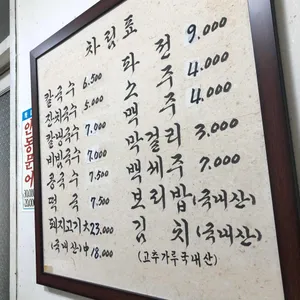 차림표
칼국수 6.500
잔치국수 5.000
칼냉국수 7.000
비빔국수 7.000
콩국수 7.500
떡국 7.500
돼지고기 大 23.000
(국내산) 中 18.000
파전 9.000
소주 4.000
맥주 4.000
막걸리 3.000
백세주 7.000
보리밥 (국내산)
김치 (국내산)
(고추가루국내산)
안동문어